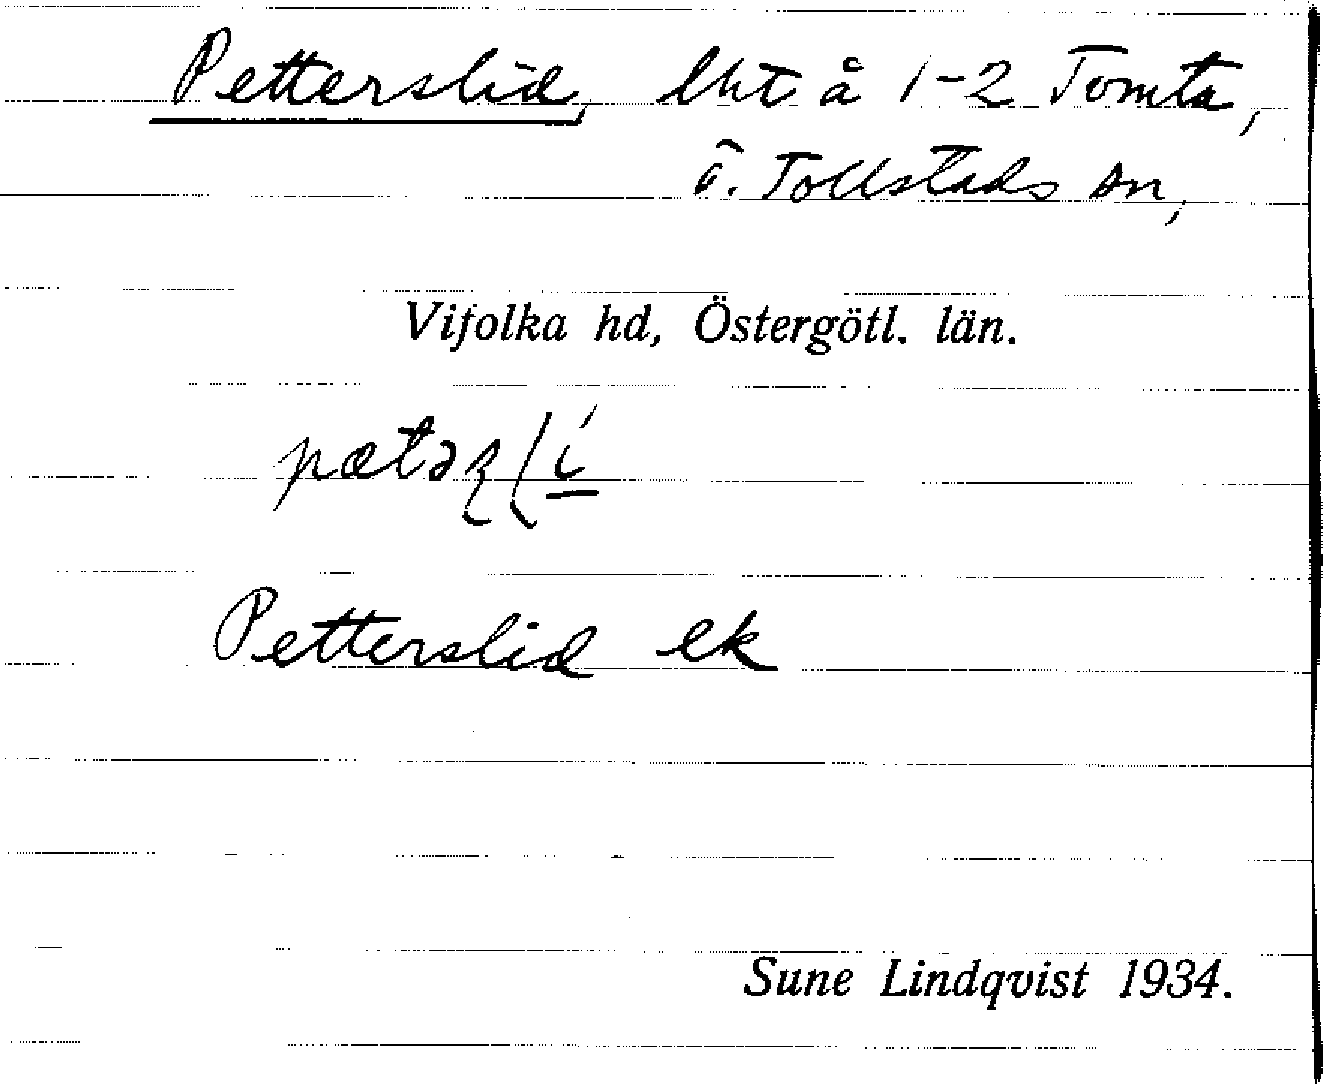 Petterslid, lht å 1-2 Tomta,
Ö. Tollstads sn,
Vifolka hd, Östergötl. län.
Petterslid ek
Sune Lindqvist 1934.